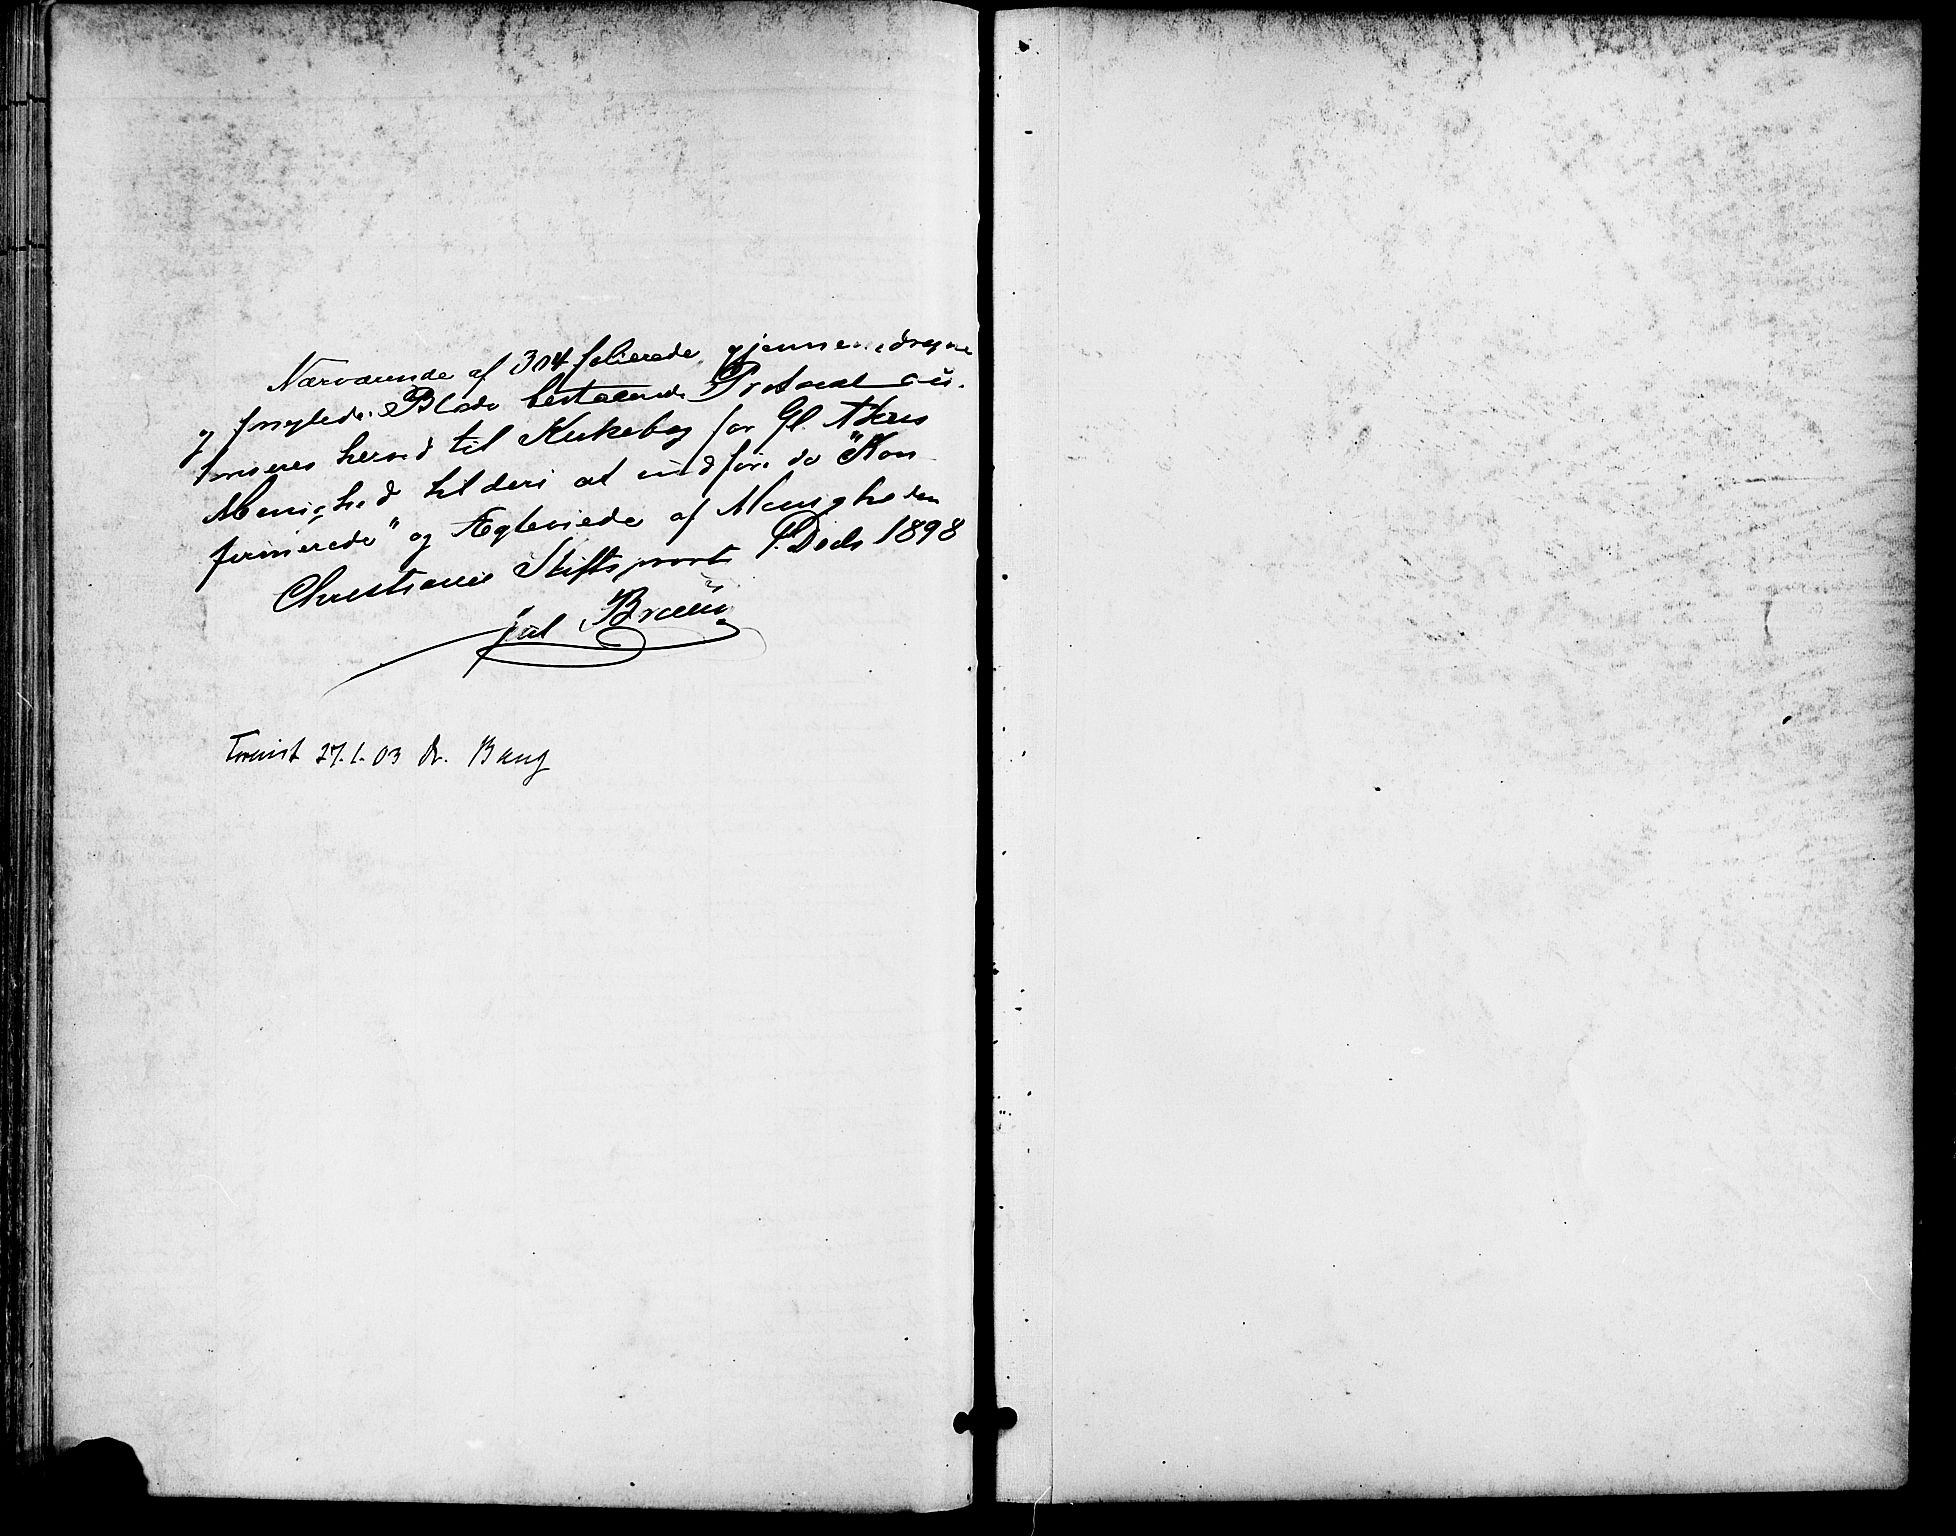 Nærværende af 304 folierede, gjennemdragne
og forseglede Blade bestaaende Protocol au-
toriseres herved til Kirkebog for Gl. Akers
Menighed til deri at indføre de "Kon
firmerede" og Ægteviede af Menigheden
Christiania Stiftsprovsti 1. Decb 1898
Jul Bruun
Forevist 27.1.03 Dr. Bang